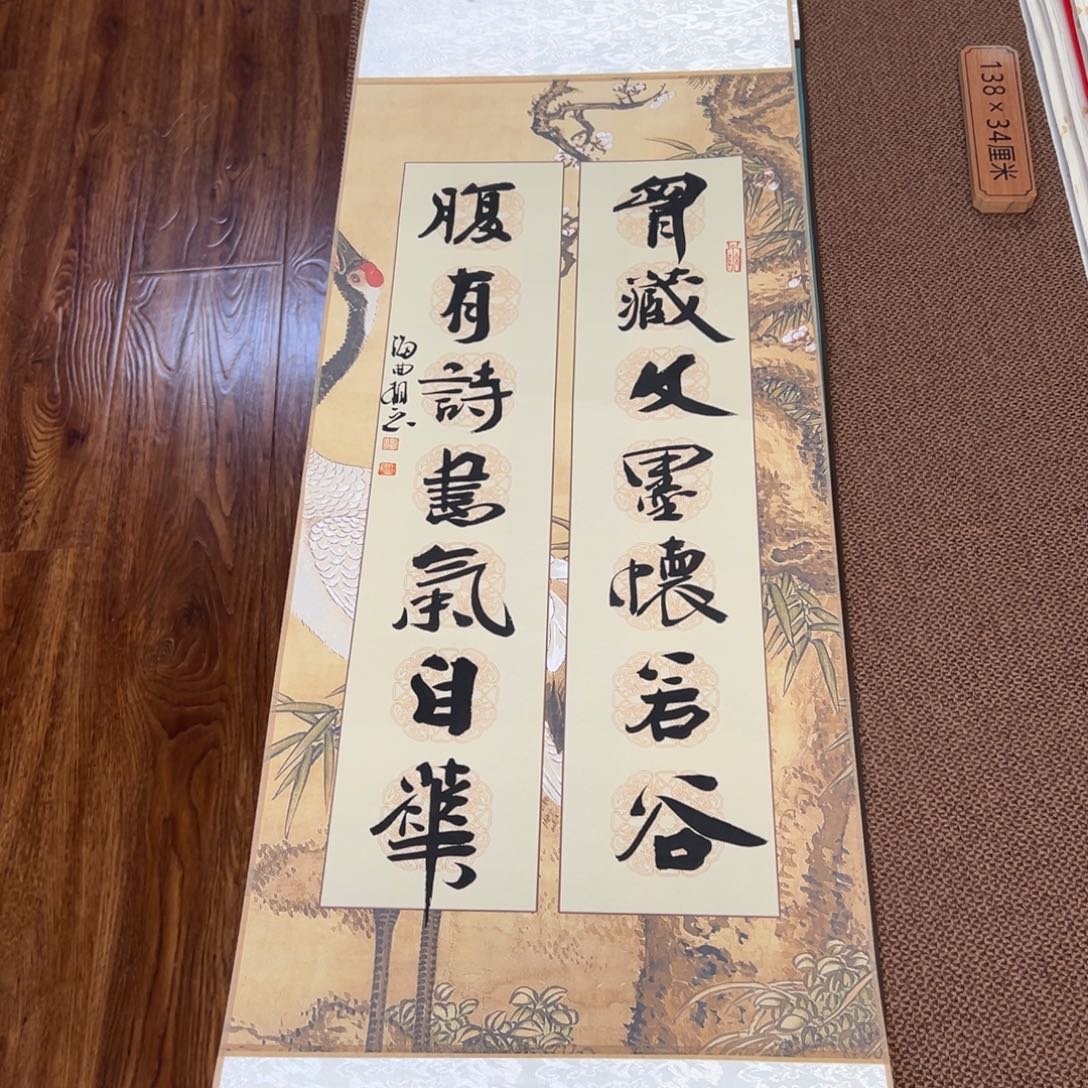 胷藏文墨懷若谷
腹有詩書氣自華
海曲
138×34厘米